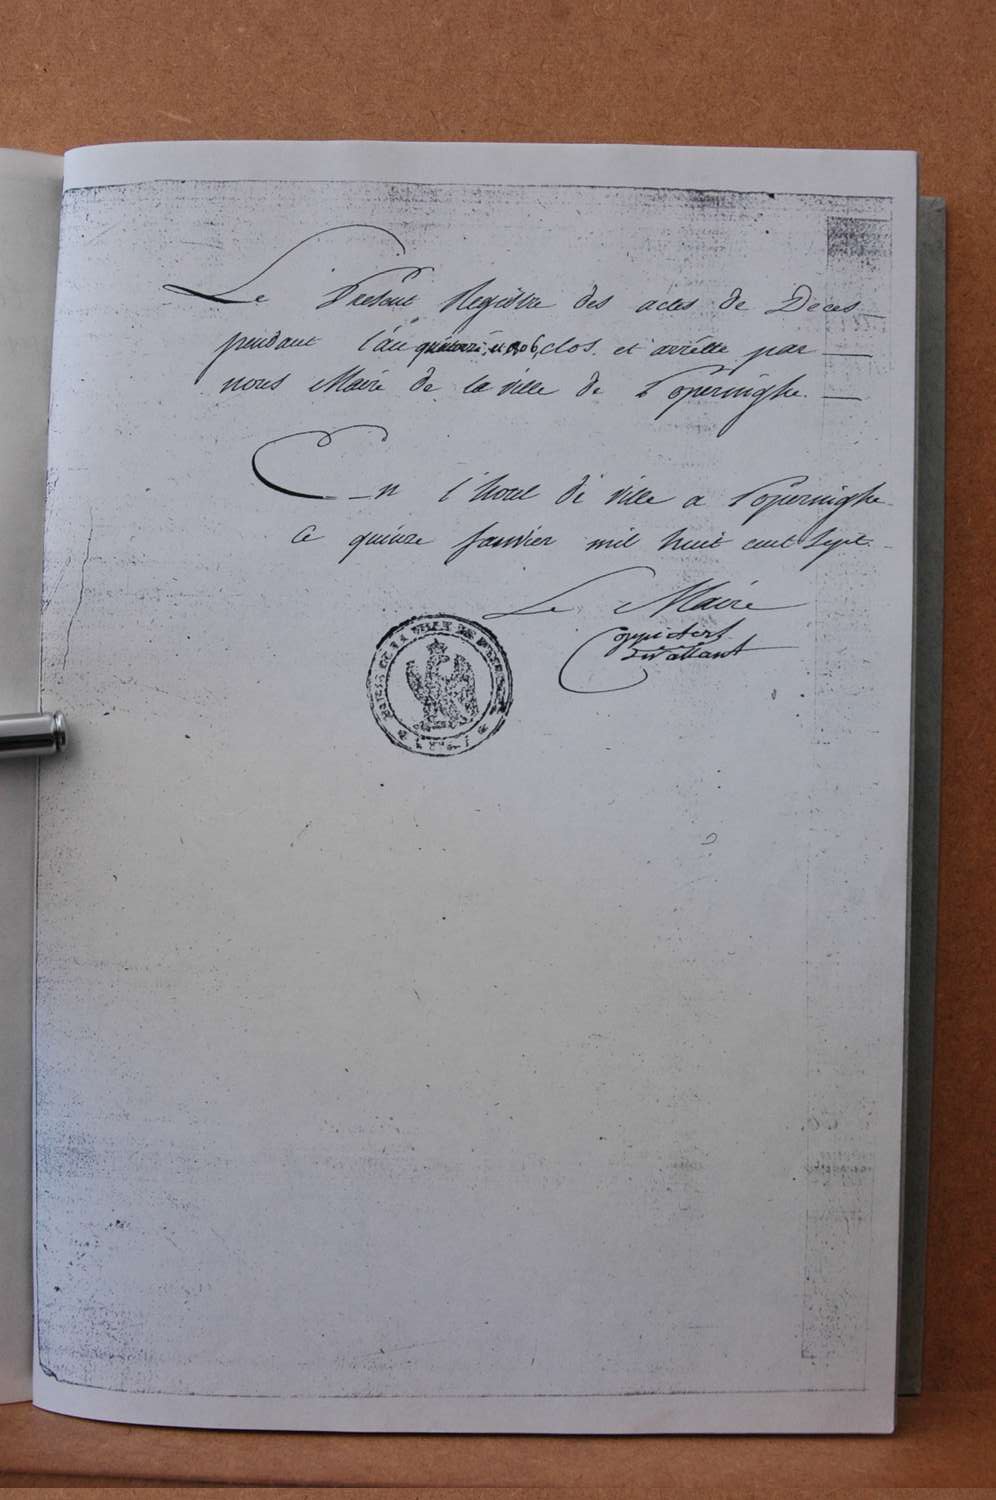 Le Présent Registre des actes de Déces
pendant l'an quatorze, et 1806, clos. et arrêtté par
nous Maire de la ville de Poperinghe.
En l'hotel de ville a Poperinghe
Ce quinze Janvier mil huit cent Sept.
Le Maire
MAIRIE DE LA VILLE DE